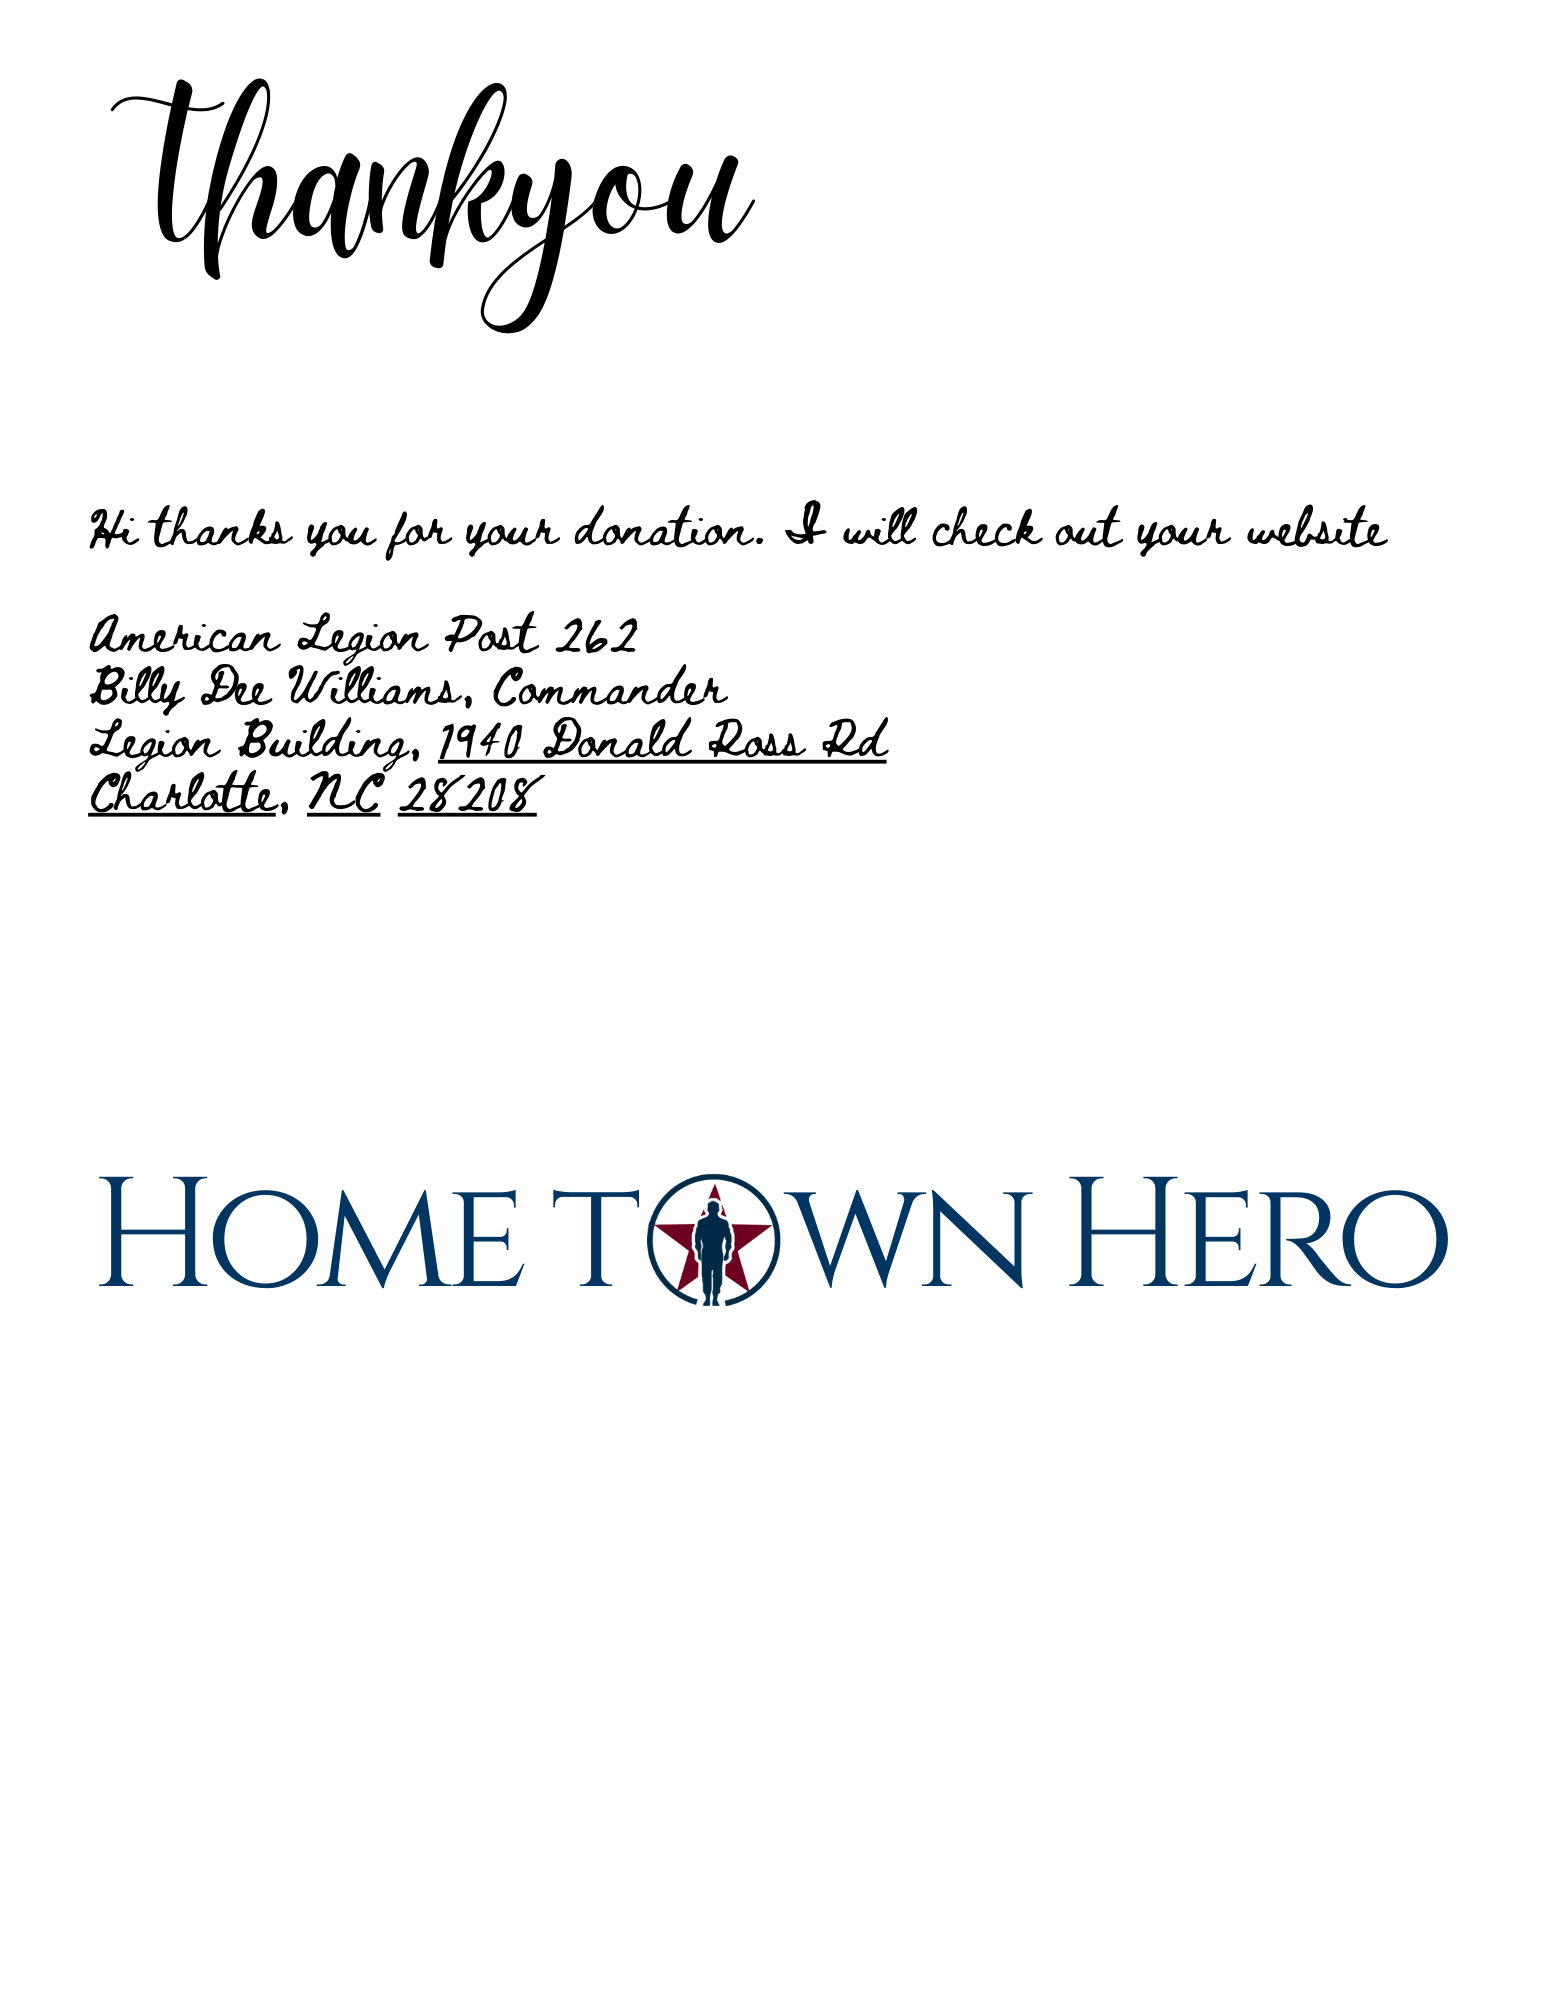 thankyou
Hi thanks you for your donation. I will check out your website
American Legion Post 262
Billy Dee Williams, Commander
Legion Building, 1940 Donald Ross Rd
Charlotte, NC 28208
HOME TOWN HERO